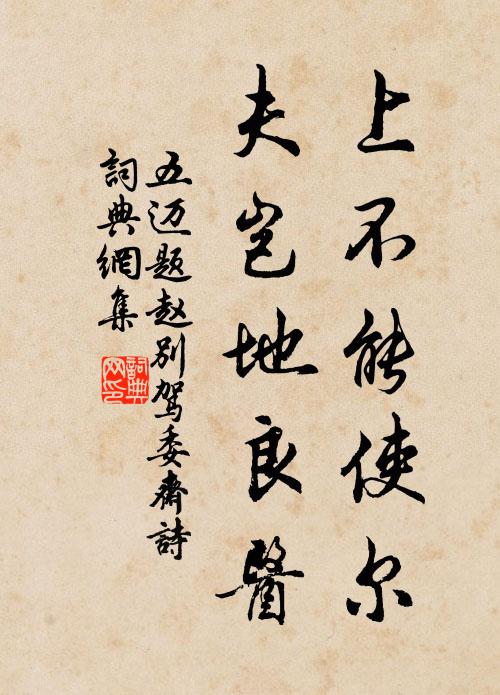 上不能使尔
夫岂地良醫
五迈题赵别驾委齋詩
詞典網集
詞典网印